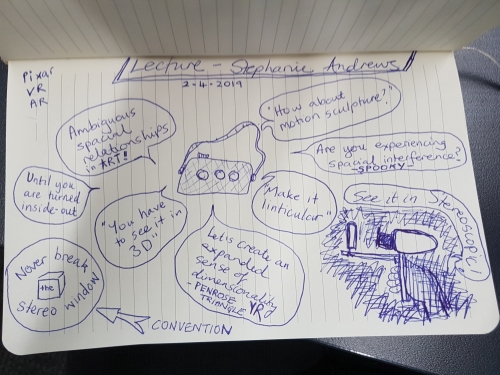 Lecture - Stephanie Andrews
2-4-2019
Pixar
VR
AR
Ambiguous
spacial
relationships
in ART!
"How about
motion sculpture?!"
Are you experiencing
spacial interference?
-SPOOKY-
Until you
are turned
inside-out
"You have
to see it in
3D"
"Make it
linticular"
See it in Stereoscopic!
Let's create an
expanded
sense of
dimensionality
- PENROSE
TRIANGLE VR
Never break
the
stereo window
CONVENTION